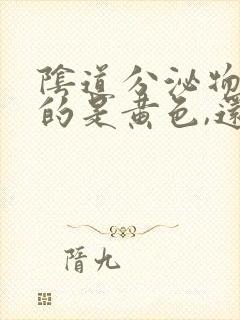 陰道分泌物
的是黃色,還
隋九